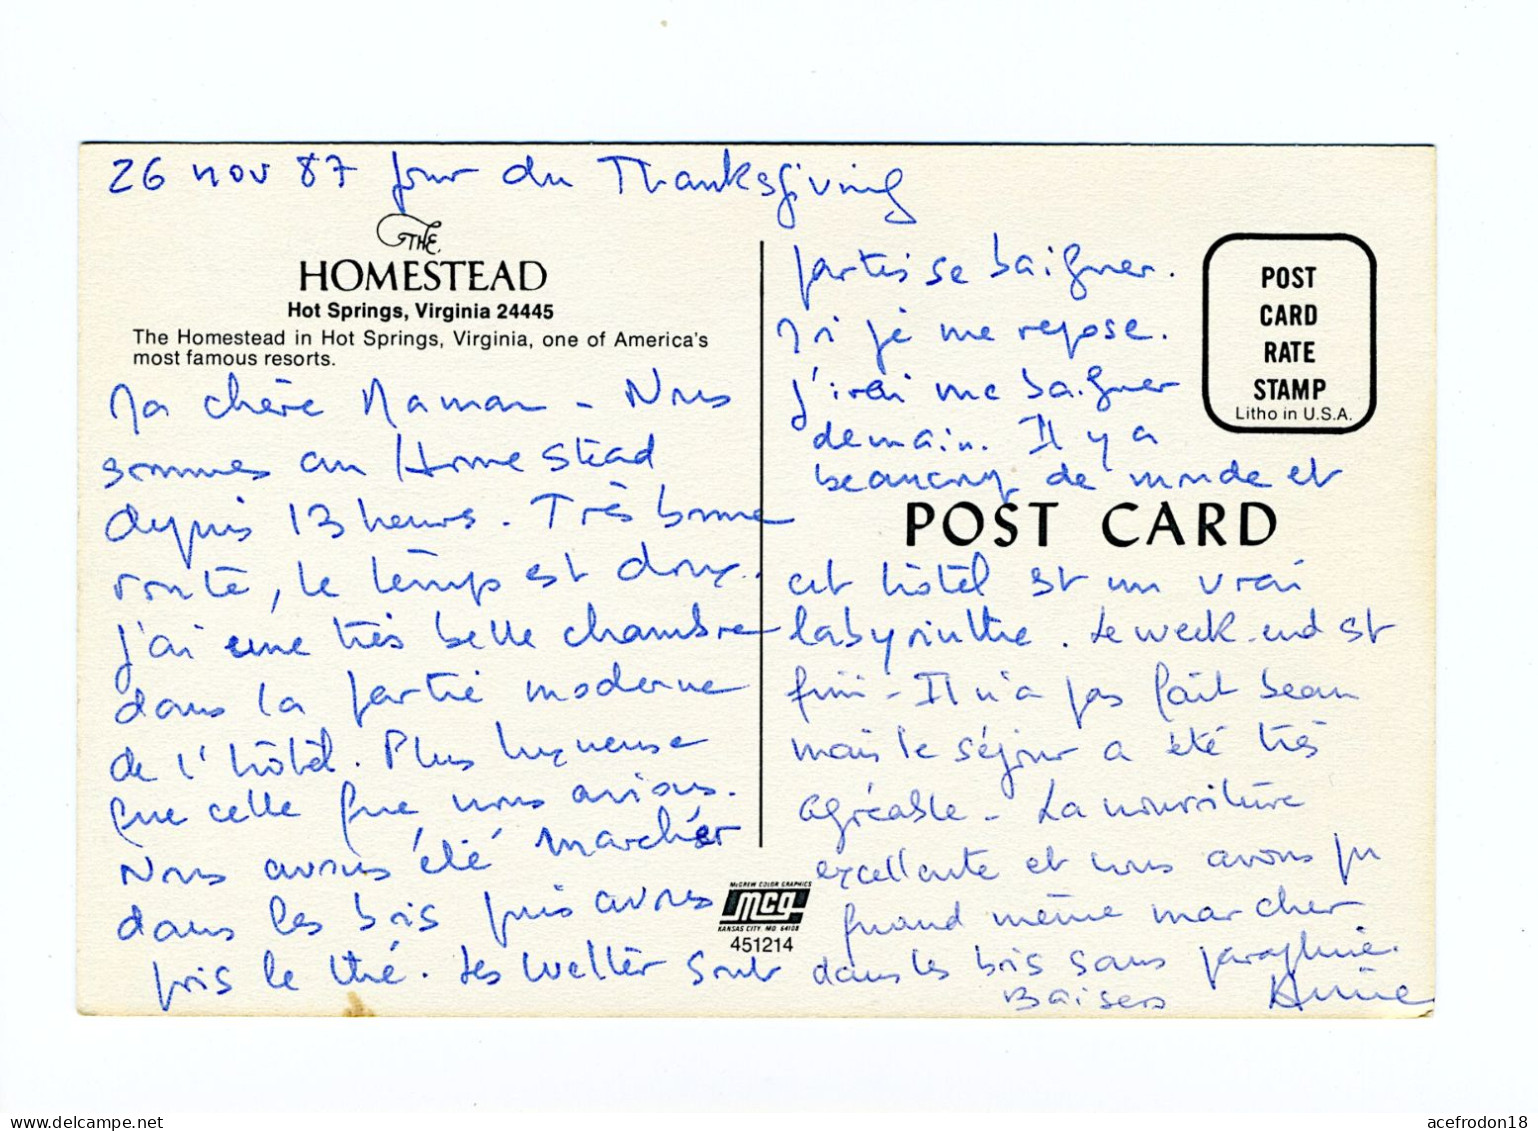 26 nov 87 jour du Thanksgiving
THE
HOMESTEAD
Hot Springs, Virginia 24445
The Homestead in Hot Springs, Virginia, one of America's
most famous resorts.
Ma chère Maman - Nous
sommes au Homestead
depuis 13 heures. Très bonne
route, le temps est doux.
J'ai une très belle chambre
dans la partie moderne
de l'hôtel. Plus luxueuse
que celle que nous avions.
Nous avons été marcher
dans les bois puis avons
pris le thé. Les Weller sont
partis se baigner.
je me repose.
J'irai me baigner
demain. Il y a
beaucoup de monde et
cet hôtel est un vrai
labyrinthe. Le week-end est
fini - Il n'a pas fait beau
mais le séjour a été très
agréable - La nourriture
excellente et nous avons pu
quand même marcher
dans les bois sans parapluie.
Baisers Annie
POST
CARD
RATE
STAMP
Litho in U.S.A.
POST CARD
McGREW COLOR GRAPHICS
mcg
KANSAS CITY, MO 64108
451214
acefrodon18